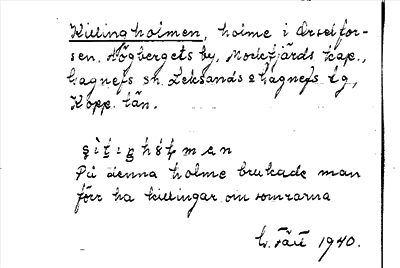 Killingholmen, holme i Orselfor-
sen, Högbergets by, Mockfjärds kap.,
Gagnefs sn. Leksands o Gagnefs tg,
Kopp. län.
På denna holme brukade man
förr ha killingar om somrarna
1940.